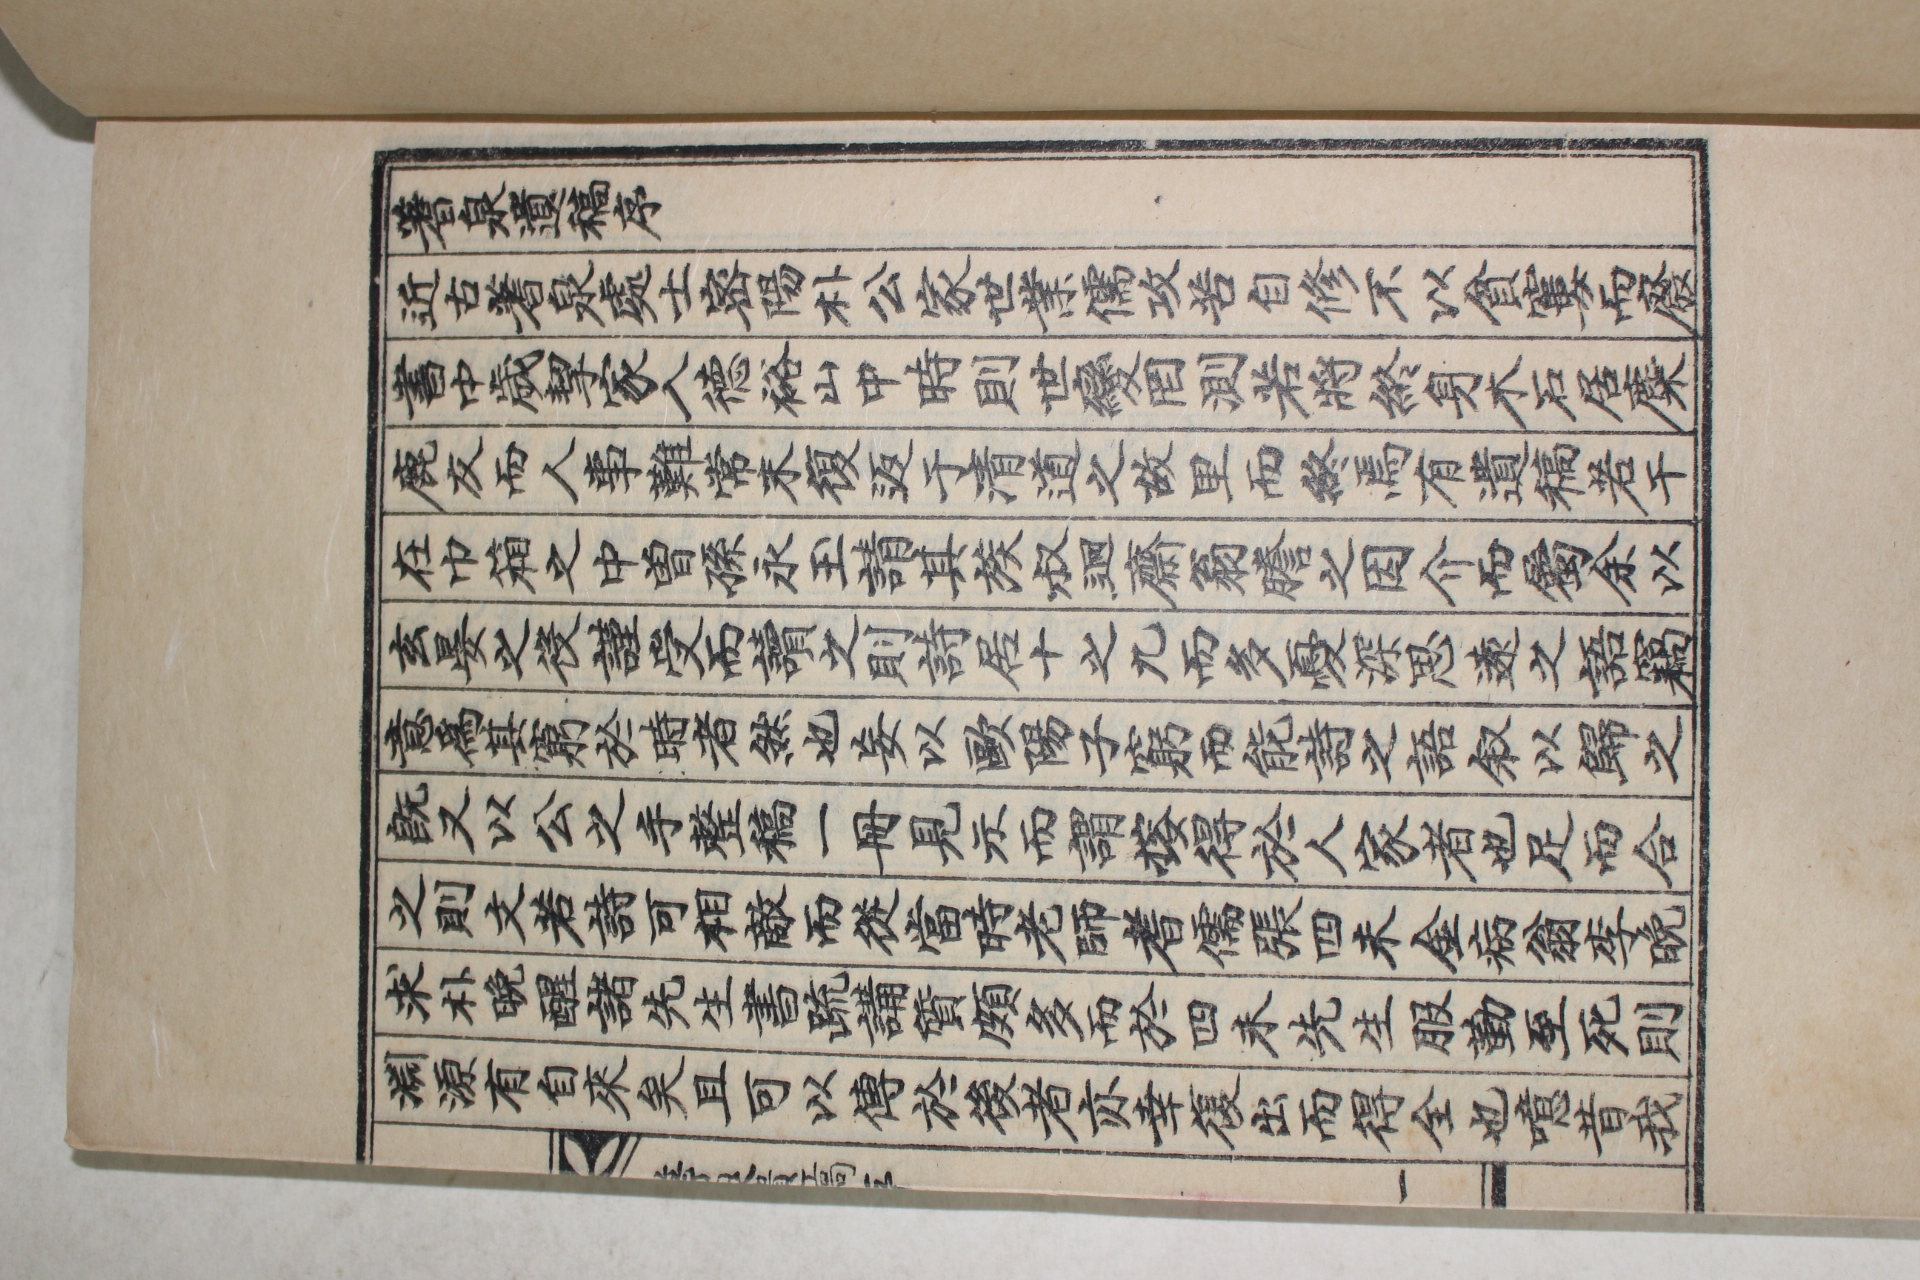 蓍泉遺稿序
近古蓍泉處士密陽朴公家世業儒攻苦自修不以貧窶而廢
書中歲挈家入德裕山中時則世變罔測若將終身木石居麋
鹿友而人事難常未復返于清道之故里而終焉有遺稿若干
在巾箱之中曾孫永玉請其族叔逥齋翁謄之因介而屬余以
玄晏之役謹受而讀之則詩居十之九而多憂深思遠之語竊
意爲其窮於時者然也妄以歐陽子窮而能詩之語叙以歸之
旣又以公之手整稿一冊見示而謂搜得於人家者也足而合
之則文若詩可相敵而從當時老師耆儒張四未金病翁李晩
求朴晩醒諸先生書疏講質頗多而於四未先生服勤至死則
淵源有自來矣且可以傳於後者亦幸復出而得全也噫昔我
一